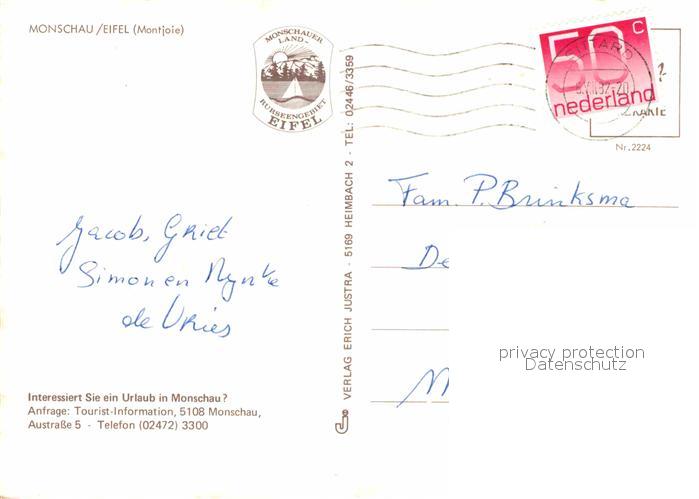 MONSCHAU /EIFEL (Montjoie)
MONSCHAUER
LAND-
RURSEENGEBIET
EIFEL
50 C
nederland
SITTARD
Nr. 2224
VERLAG ERICH JUSTRA · 5169 HEIMBACH 2 - TEL: 02446/3359
Jacob, Griet
Simon en Nynke
de Vries
Fam. P. Brinksma
De
M
privacy protection
Datenschutz
Interessiert Sie ein Urlaub in Monschau?
Anfrage: Tourist-Information, 5108 Monschau,
Austraße 5 - Telefon (02472) 3300